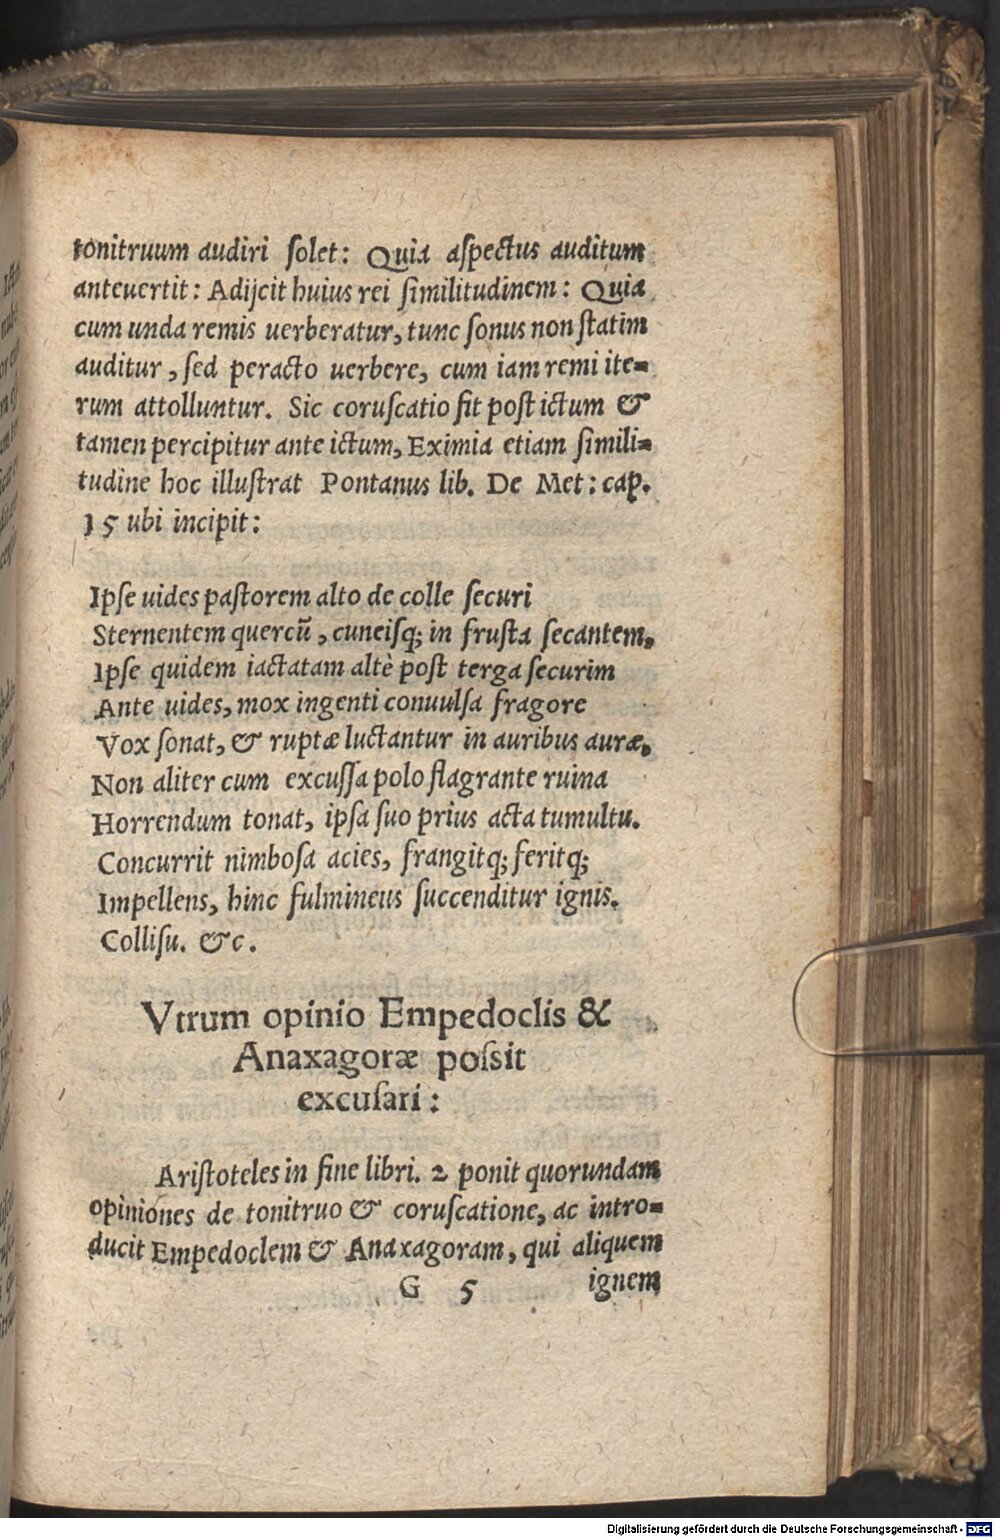 tonitruum audiri solet: Quia aspectus auditum
anteuertit: Adijcit huius rei similitudinem: Quia
cum unda remis uerberatur, tunc sonus non statim
auditur, sed peracto uerbere, cum iam remi ite=
rum attolluntur. Sic coruscatio fit post ictum &
tamen percipitur ante ictum, Eximia etiam simili=
tudine hoc illustrat Pontanus lib. De Met: cap.
15 ubi incipit:
Ipse uides pastorem alto de colle securi
Sternentem quercū, cuneisq; in frusta secantem.
Ipse quidem iactatam altè post terga securim
Ante uides, mox ingenti conuulsa fragore
Vox sonat, & ruptæ luctantur in auribus auræ.
Non aliter cum excussa polo flagrante ruina
Horrendum tonat, ipsa suo prius acta tumultu.
Concurrit nimbosa acies, frangitq; feritq;
Impellens, hinc fulmineus succenditur ignis.
Collisu. &c.
Vtrum opinio Empedoclis &
Anaxagoræ possit
excusari:
Aristoteles in fine libri. 2 ponit quorundam
opiniones de tonitruo & coruscatione, ac intro=
ducit Empedoclem & Anaxagoram, qui aliquem
G 5 ignem
Digitalisierung gefördert durch die Deutsche Forschungsgemeinschaft - DFG